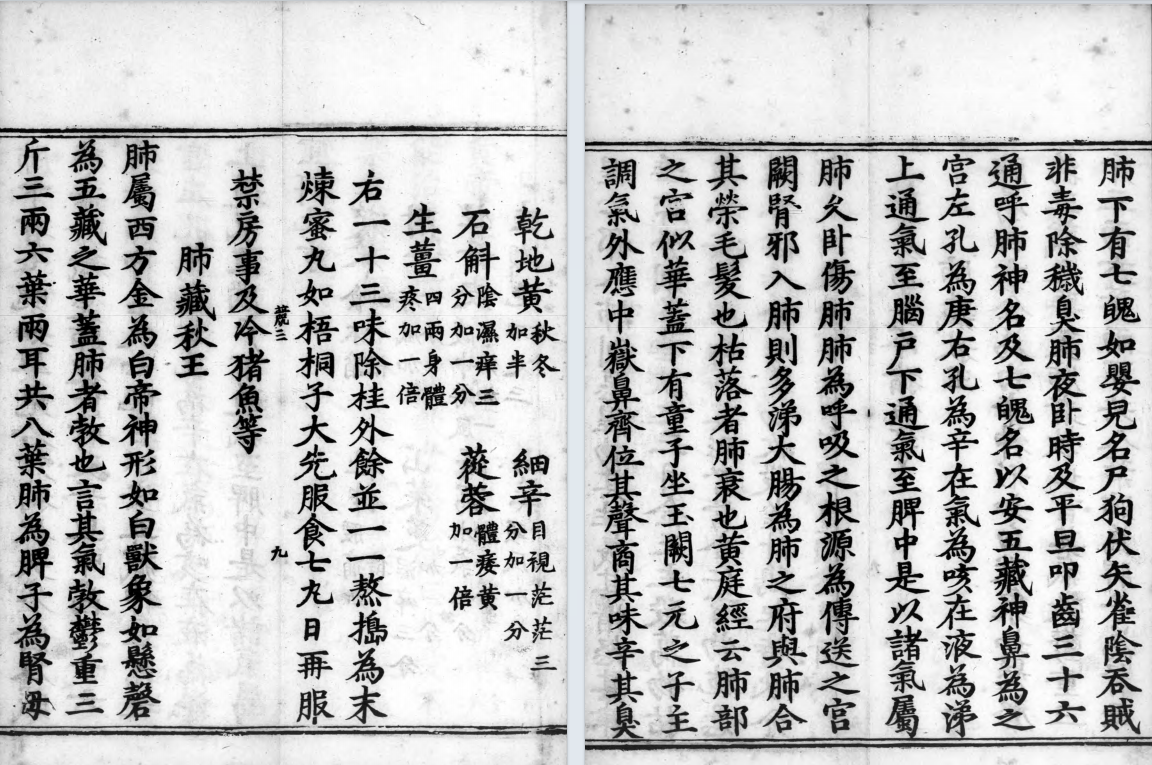 乾地黃 秋冬加半 細辛 目視茫茫三分加一分
石斛 陰濕痒三分加一分 蓯蓉 體痿黃加一倍
生薑 四兩身體疼加一倍
右一十三味除桂外餘並一一熬搗為末
煉蜜丸如梧桐子大先服食七丸日再服
三 九
禁房事及冷猪魚等
肺藏秋王
肺屬西方金為白帝神形如白獸象如懸磬
為五藏之華蓋肺者敦也言其氣敦鬱重三
斤三兩六葉兩耳共八葉肺為脾子為腎母
肺下有七魄如嬰兒名尸狗伏矢雀陰吞賊
非毒除穢臭肺夜卧時及平旦叩齒三十六
通呼肺神名及七魄名以安五藏神鼻為之
宫左孔為庚右孔為辛在氣為咳在液為涕
上通氣至腦户下通氣至脾中是以諸氣屬
肺乆卧傷肺肺為呼吸之根源為傳送之宫
闕腎邪入肺則多涕大腸為肺之府與肺合
其榮毛髮也枯落者肺衰也黄庭經云肺部
之宫似華蓋下有童子坐玉闕七元之子主
調氣外應中嶽鼻齊位其聲商其味辛其臭